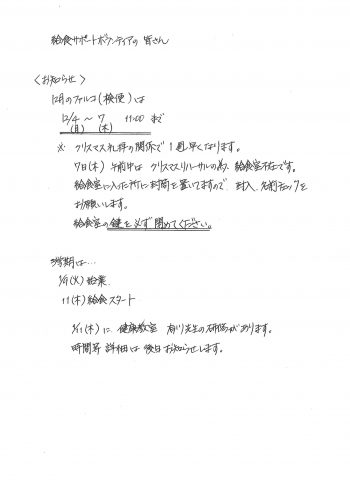 給食サポートボランティアの皆さん
〈お知らせ〉
12月のファルコ(検便)は
12/4 〜 7 11:00 まで
(月) (木)
※ クリスマス礼拝の関係で1週早くなります。
7日(木) 午前中は クリスマスリハーサルの為、給食室不在です。
給食室に入った所に封筒を置いてますので、封入、名前チェックを
お願いします。
給食室の鍵を必ず閉めてください。
3学期は…
1/9(火) 始業
11(木) 給食スタート
1/11(木)に 健康教室 先生の研修があります。
時間等 詳細は 後日お知らせします。